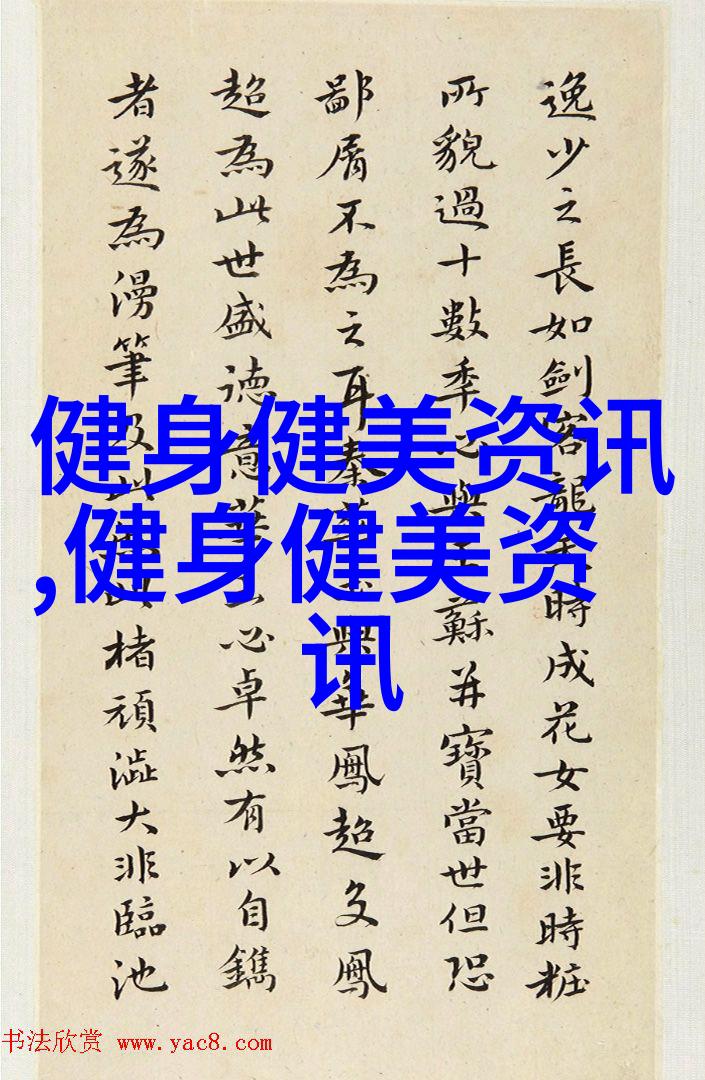 逸少之長如劍客龍時成花女要非時粧
所貌過十數季必與蘇并寶當世但恐
鄙屑不為之耳秦與華鳳超文鳳
超為此世盛德意必卓然有以自鐫
者遂為漫筆及此楮頑澁大非臨池
健身健美资讯
,健身健美资
讯
书法欣赏 www.yac8.com